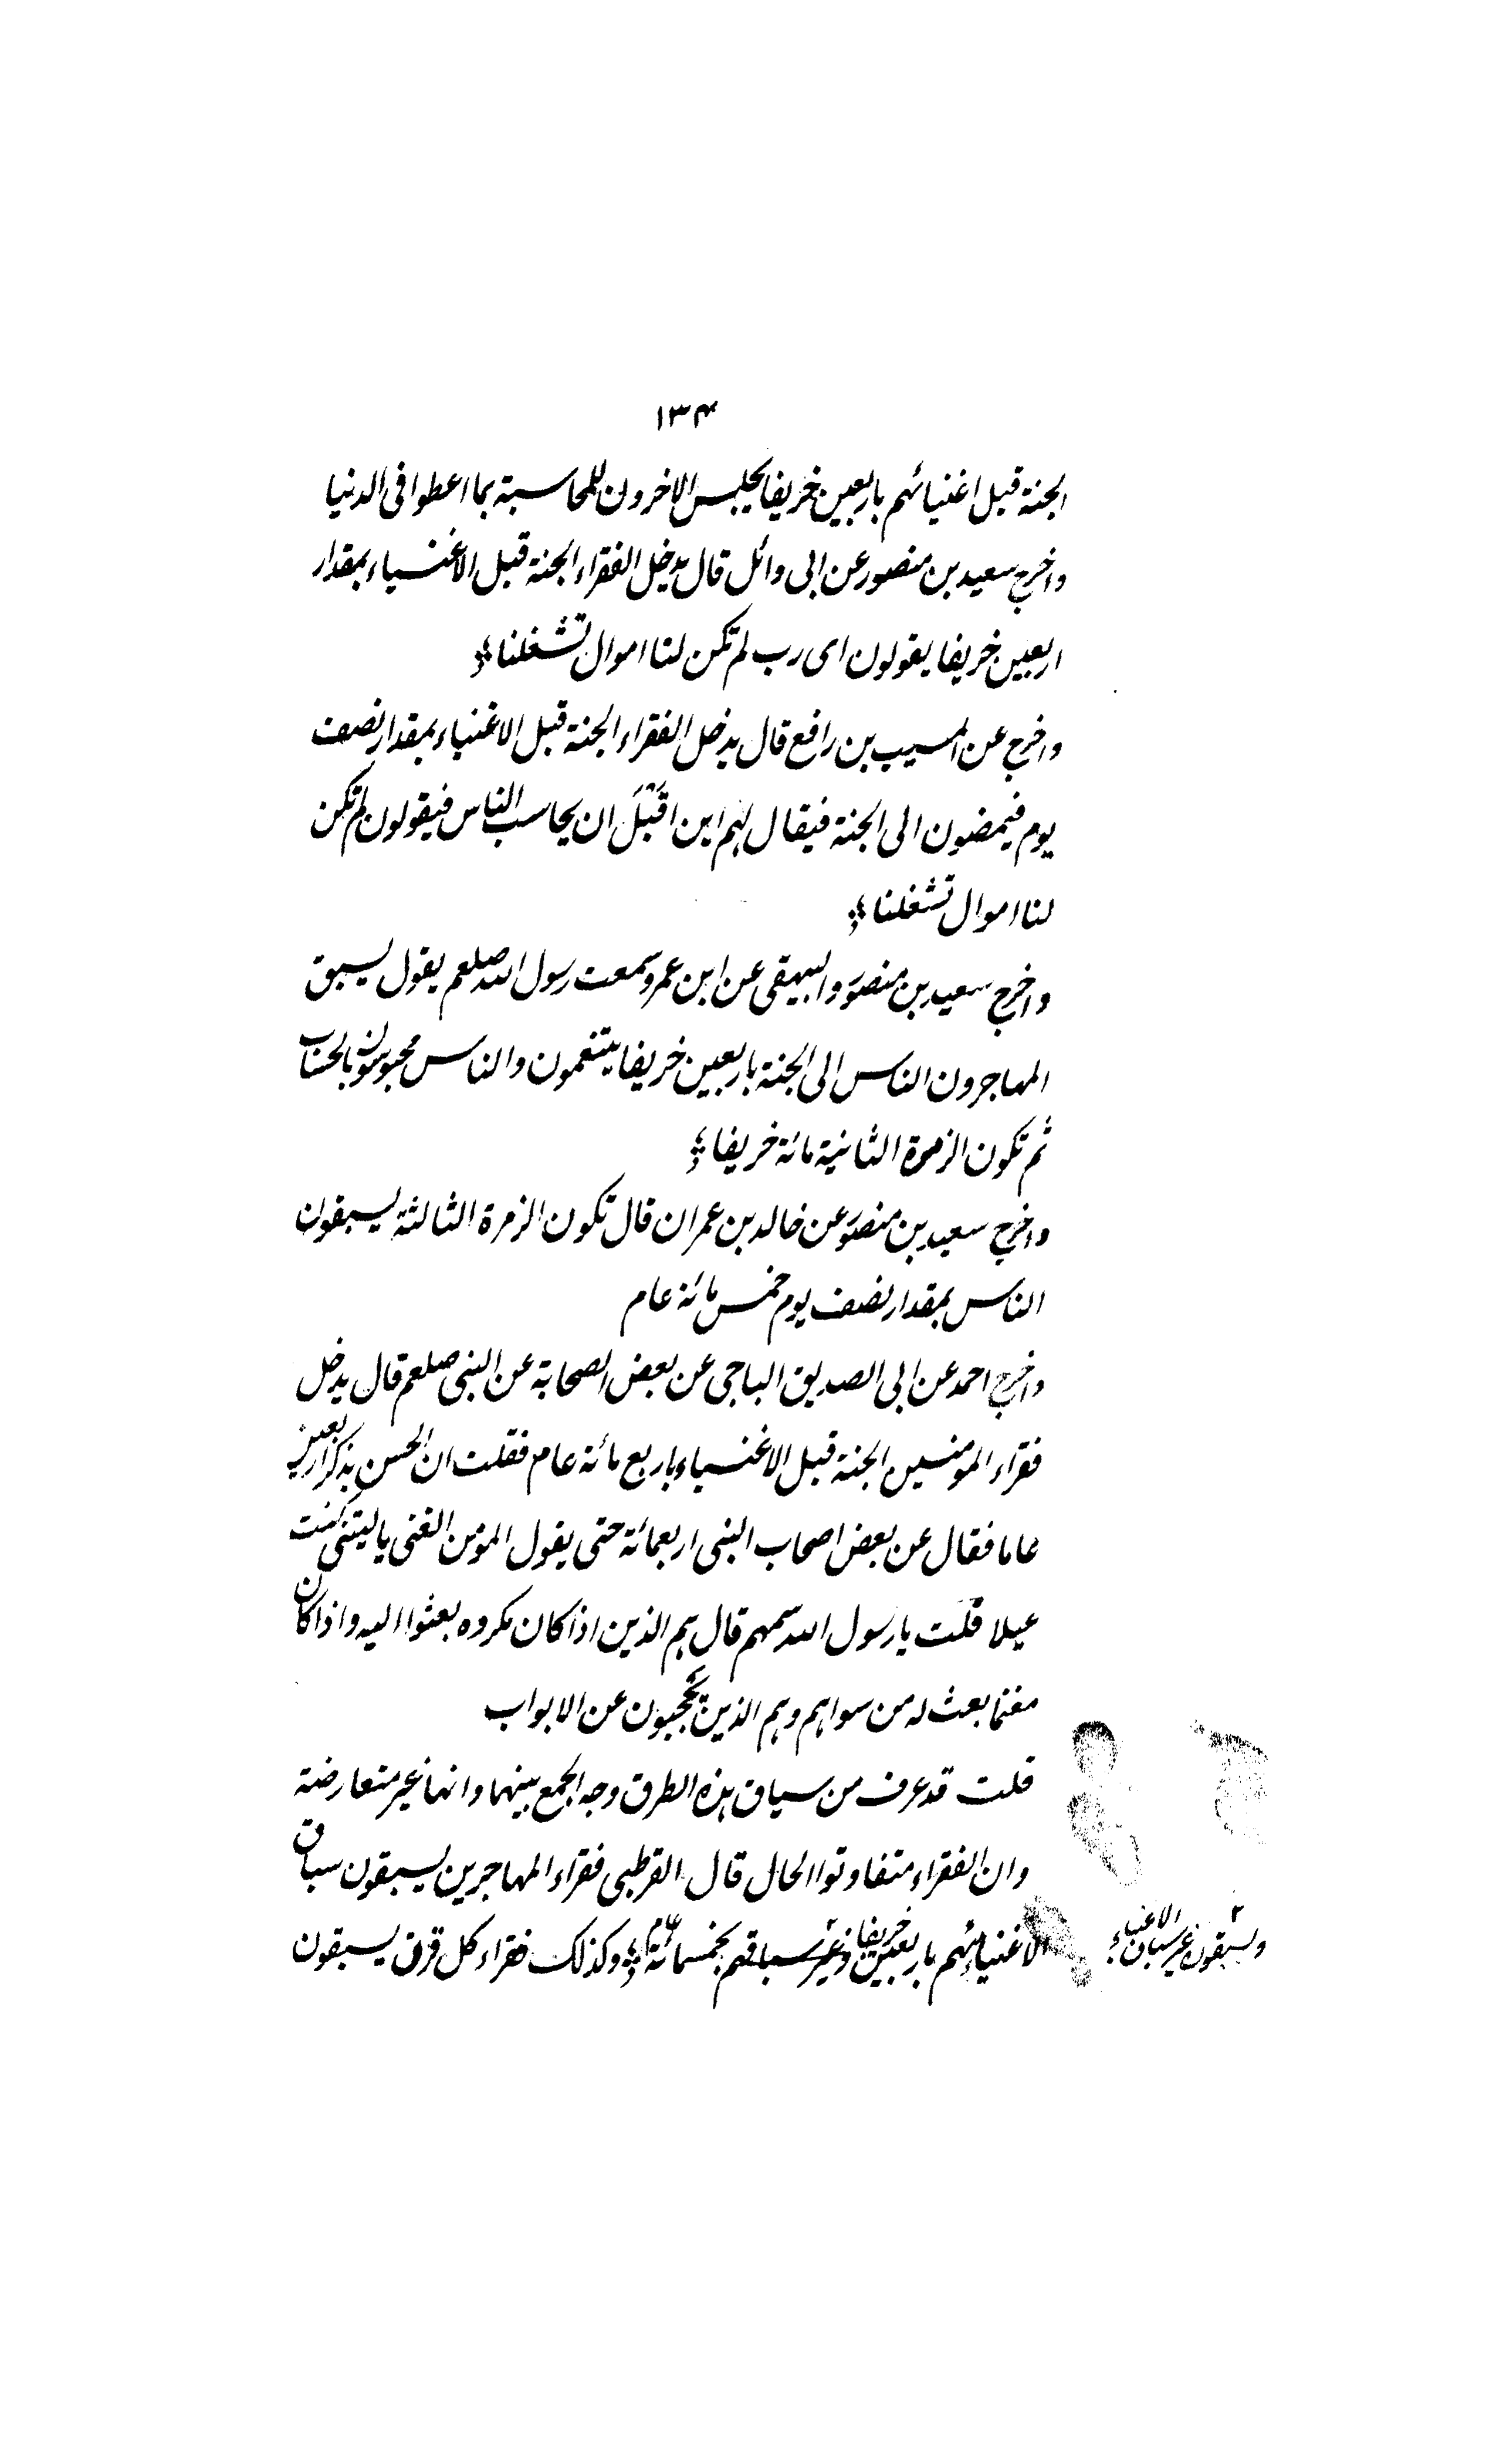 ١٣٤
الجنة قبل اغنيائهم باربعين خريفا يحبس الاخرون للمحاسبة بما اعطوا فى الدنيا
واخرج سعيد بن منصور عن ابى وائل قال يدخل الفقراء الجنة قبل الاغنياء بمقدار
اربعين خريفا يقولون اى رب لم تكن لنا اموال تشغلنا
واخرج عن المسيب بن رافع قال يدخل الفقراء الجنة قبل الاغنياء بمقدار نصف
يوم فيمضون الى الجنة فيقال لهم اين اقبل ان يحاسب الناس فيقولون لم تكن
لنا اموال تشغلنا
واخرج سعيد بن منصور والبيهقى عن ابن عمرو سمعت رسول الله صلعم يقول يسبق
المهاجرون الناس الى الجنة باربعين خريفا يتنعمون والناس محبوسون بالحساب
ثم تكون الزمرة الثانية مائة خريفا
واخرج سعيد بن منصور عن خالد بن عمران قال تكون الزمرة الثالثة يسبقون
الناس بمقدار نصف يوم خمس مائة عام
واخرج احمد عن ابى الصديق الباجى عن بعض الصحابة عن النبى صلعم قال يدخل
فقراء المومنين الجنة قبل الاغنياء باربع مائة عام فقلت ان الحسن يذكر اربعين
عاما فقال عن بعض اصحاب النبى اربعمائة حتى يقول المؤمن الغنى ياليتنى كنت
عيلا قلت يا رسول الله سمهم قال هم الذين اذا كان مكروه بعثوا اليه واذا كان
مغنما بعث له من سواهم وهم الذين يحجبون عن الابواب
قلت قد عرف من سياق هذه الطرق وجه الجمع بينهما وانها غير متعارضة
وان الفقراء متفاوتوا الحال قال القرطبى فقراء المهاجرين يسبقون سباق
الاغنياء منهم باربعين خريفا وغير سباقهم بخمسمائة عام وكذلك فقراء كل قرن يسبقون
٢
ويسبقون غير سباق الاغنياء